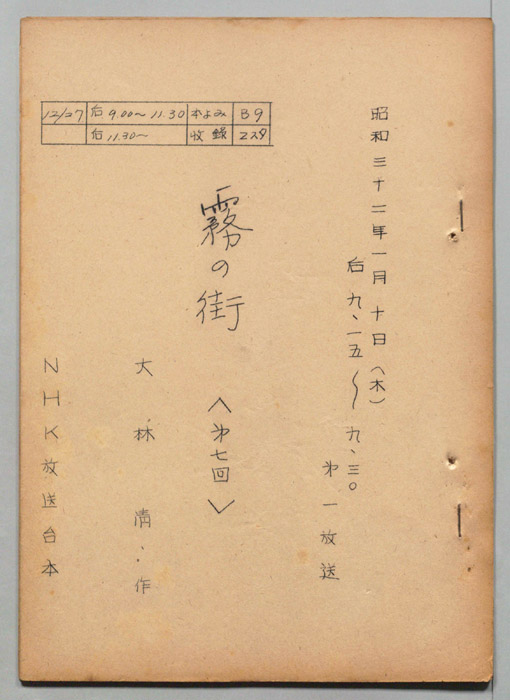 12/27 后 9.00〜11.30 本よみ B9
后 11.30〜 收録 2スタ
昭和三十二年一月十日(木)
后九、一五〜九、三〇
第一放送
霧の街
〈第七回〉
大林清・作
NHK放送台本